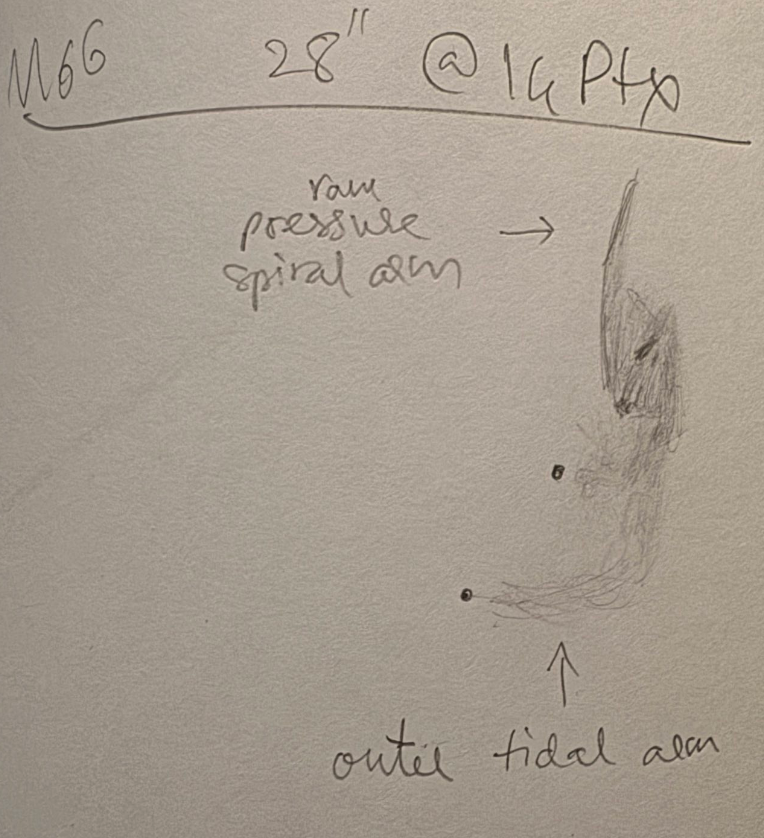 M66 28" @ IG Ptx
ram
pressure
spiral arm
outer tidal arm